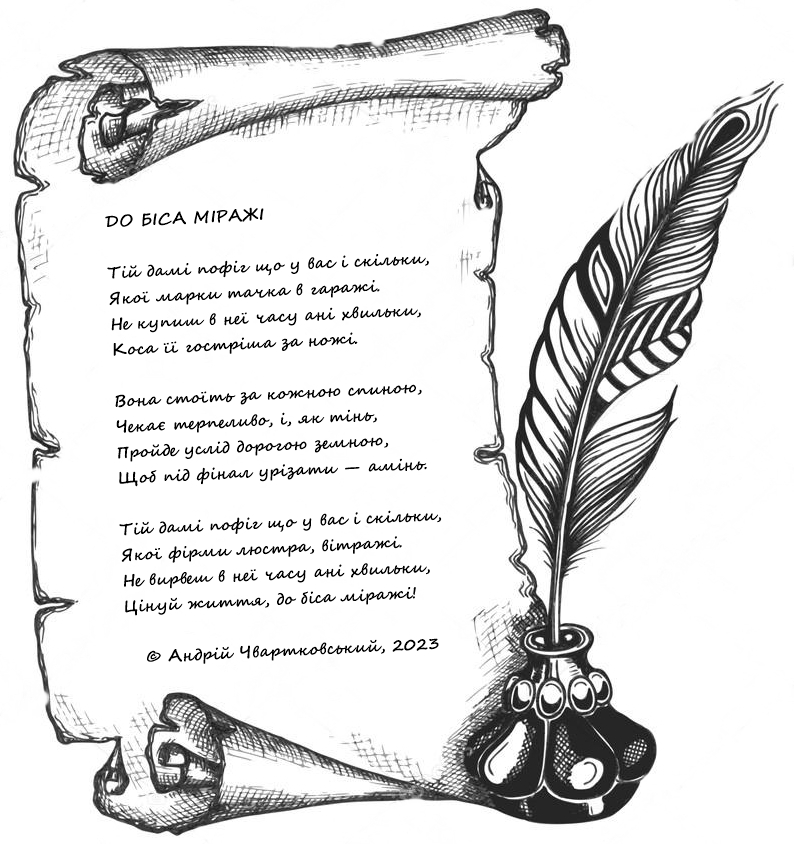 ДО БІСА МІРАЖІ
Тій дамі пофіг що у вас і скільки,
Якої марки тачка в гаражі.
Не купиш в неї часу ані хвильки,
Коса її гостріша за ножі.
Вона стоїть за кожною спиною,
Чекає терпеливо, і, як тінь,
Пройде услід дорогою земною,
Щоб під фінал урізати — амінь.
Тій дамі пофіг що у вас і скільки,
Якої фірми люстра, вітражі.
Не вирвеш в неї часу ані хвильки,
Цінуй життя, до біса міражі!
© Андрій Чвартковський, 2023